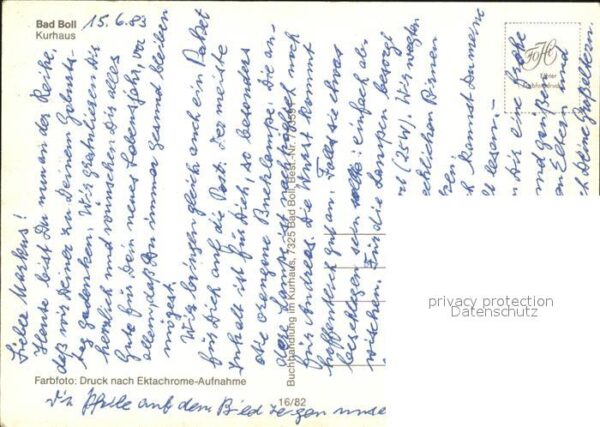 Bad Boll
Kurhaus
15.6.83
Lieber Markus!
Heute bist Du nun an der Reihe,
daß wir Deiner zu Deinem Geburts-
tag gedenken. Wir gratulieren Dir
herzlich und wünschen Dir alles
Gute für Dein neues Lebensjahr, vor
allem, daß Du immer gesund bleiben
mögest.
Wir bringen gleich auch ein Paket
für Dich auf die Post. Der meiste
Inhalt ist für Dich, so besonders
die orangene Bucklampe. Die an-
dere Lampe ist nachträglich noch
für Andreas. Die Wurst kommt
hoffentlich gut an. Falls sie etwas
beschlagen sein sollte: einfach ab-
wischen. Für die Lampen besorgt
(25W). Wir wagten
echlichen Birnen
kannst Du meine
lesen.-
Dir eine frohe
und grüßen
Eltern und
Deine Großeltern
Die Pfeile auf dem Bild zeigen unse
Buchhandlung im Kurhaus, 7325 Bad Boll, Best.-Nr.
Farbfoto: Druck nach Ektachrome-Aufnahme
16/82
privacy protection
Datenschutz